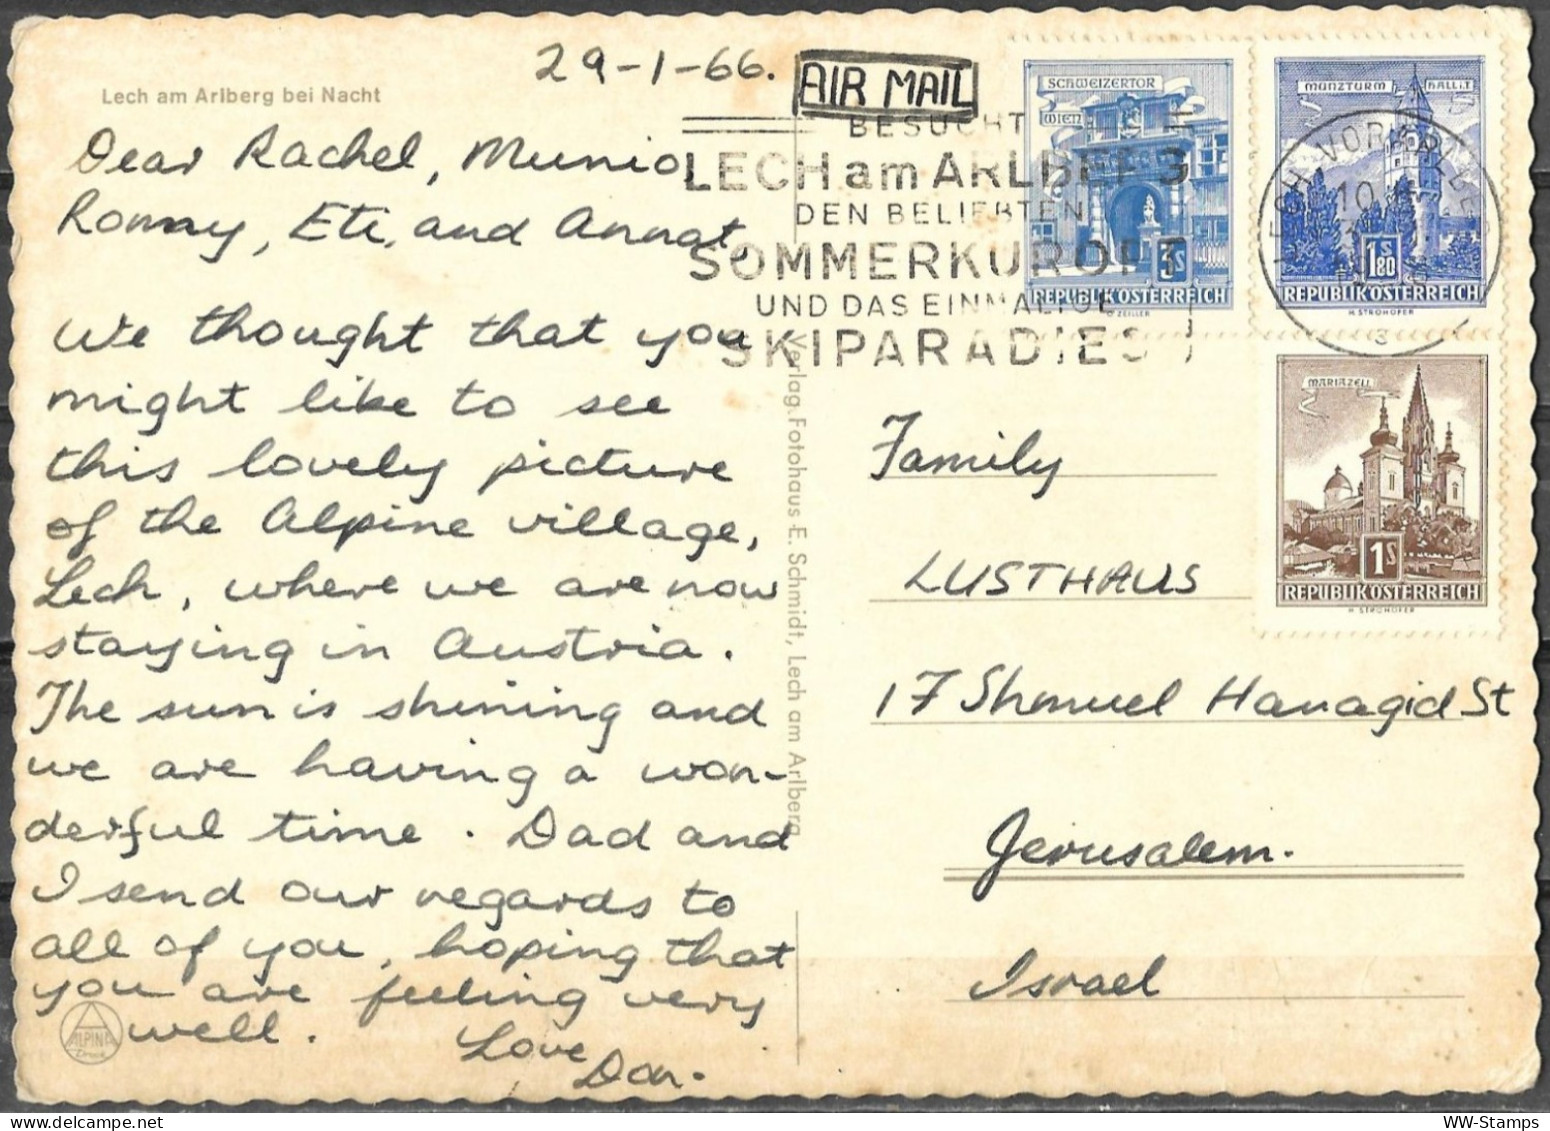 29-1-66.
AIR MAIL
Lech am Arlberg bei Nacht
Dear Rachel, Munio,
Ronny, Eti, and Annat,
We thought that you
might like to see
this lovely picture
of the Alpine village,
Lech, where we are now
staying in Austria.
The sun is shining and
we are having a won-
derful time. Dad and
I send our regards to
all of you, hoping that
you are feeling very
well.
Love
Dan.
ALPINA
Druck
Verlag Fotohaus E. Schmidt, Lech am Arlberg
BESUCHT
LECH am ARLBERG
DEN BELIEBTEN
SOMMERKURORT
UND DAS EINMALIGE
SKIPARADIES
SCHWEIZERTOR
WIEN
3S
REPUBLIK ÖSTERREICH
G. ZEILLER
MÜNZTURM HALL i.T.
1S80
REPUBLIK ÖSTERREICH
H. STROHOFER
LECH, VORARLBERG
10
3
MARIAZELL
1S
REPUBLIK ÖSTERREICH
H. STROHOFER
Family
LUSTHAUS
17 Shmuel Hanagid St
Jerusalem.
Israel
WW-Stamps